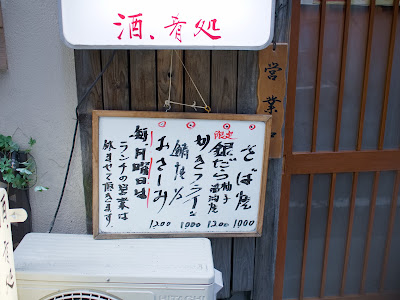 酒、肴処
営業
そば屋
1000
限定
銀だら
柚子
1200
かきフライ
1000
鯖焼
おさしみ
1200
毎月曜日は
ランチの営業は
休ませて頂きます。